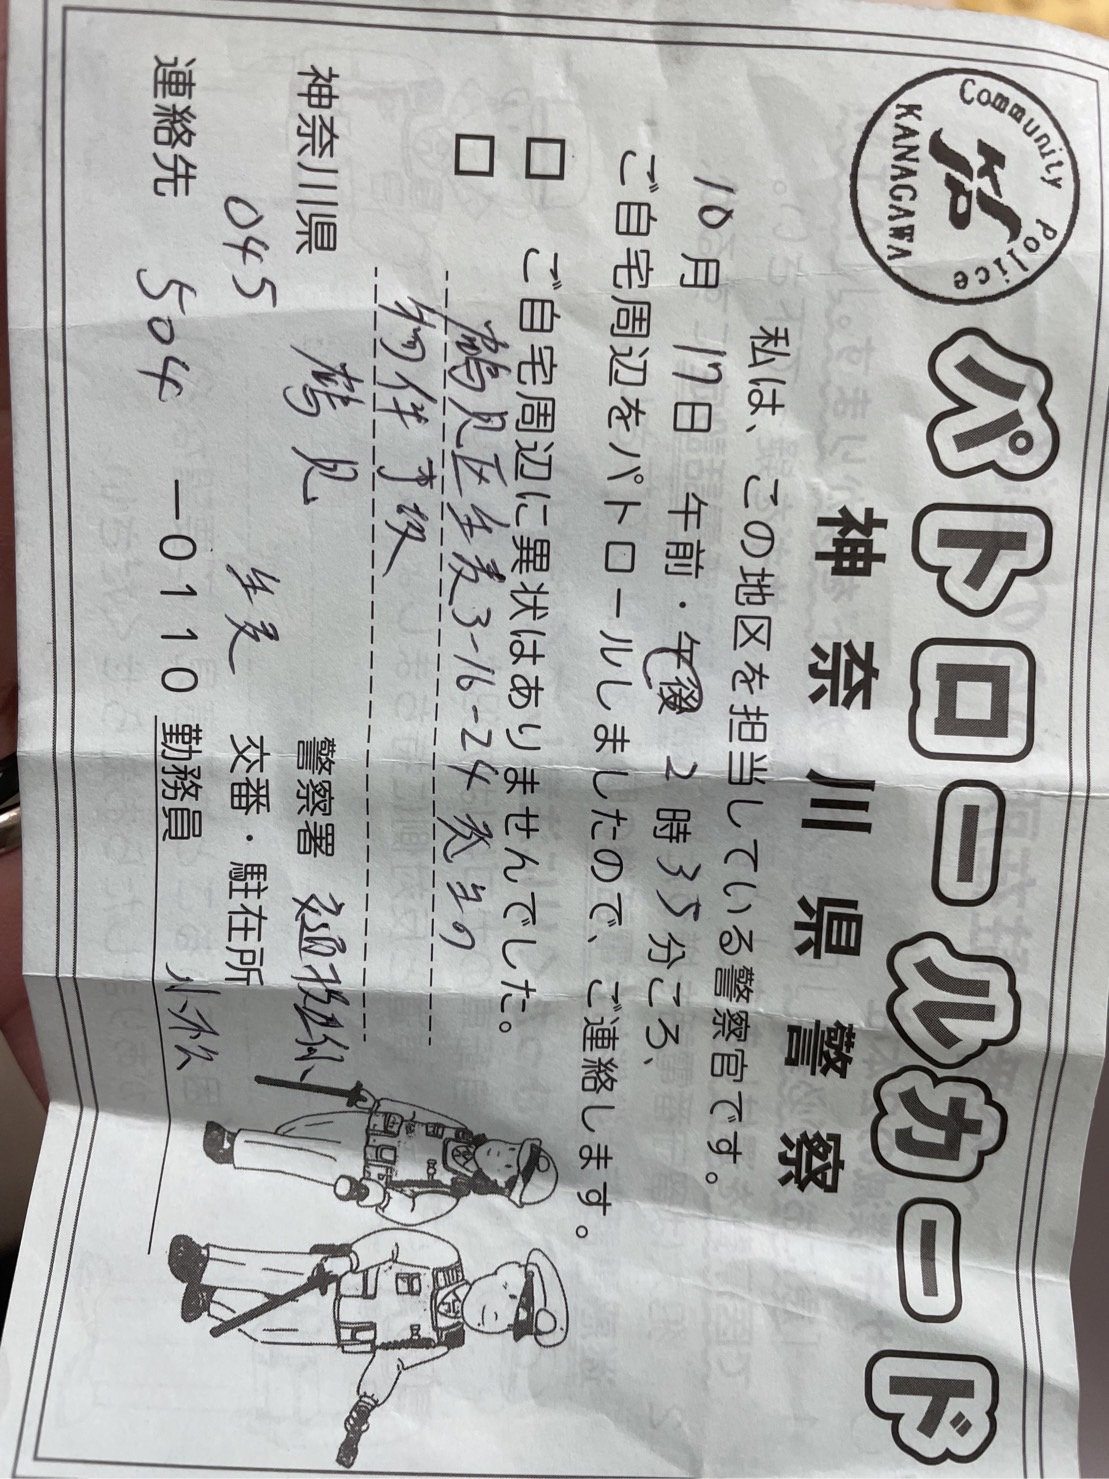 Community Police
KANAGAWA
パトロールカード
神奈川県警察
私は、この地区を担当している警察官です。
10月 17日 午前・午後 2時35分ころ、
ご自宅周辺をパトロールしましたので、ご連絡します。
□ ご自宅周辺に異状はありませんでした。
□ 鶴見区生麦3-16-24 先より
物件事故
神奈川県 鶴見 警察署
045 生麦 交番・駐在所
連絡先 504 ー0110 勤務員 小松